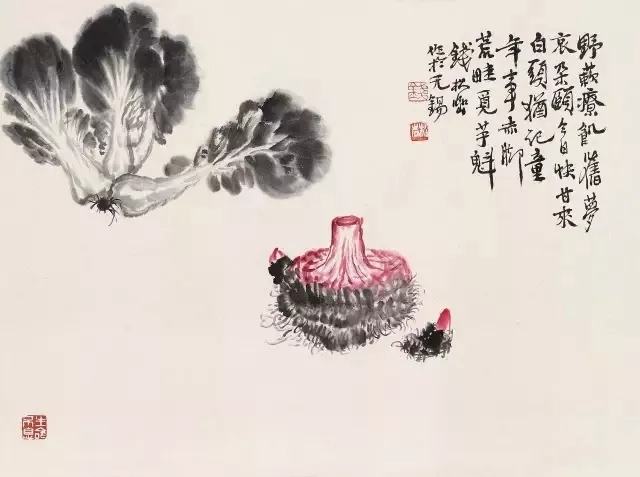 野蔌療飢舊夢
哀朶頤今日快甘來
白頭猶記童
年事赤腳
荒畦覓芋魁
錢松喦
作於无錫